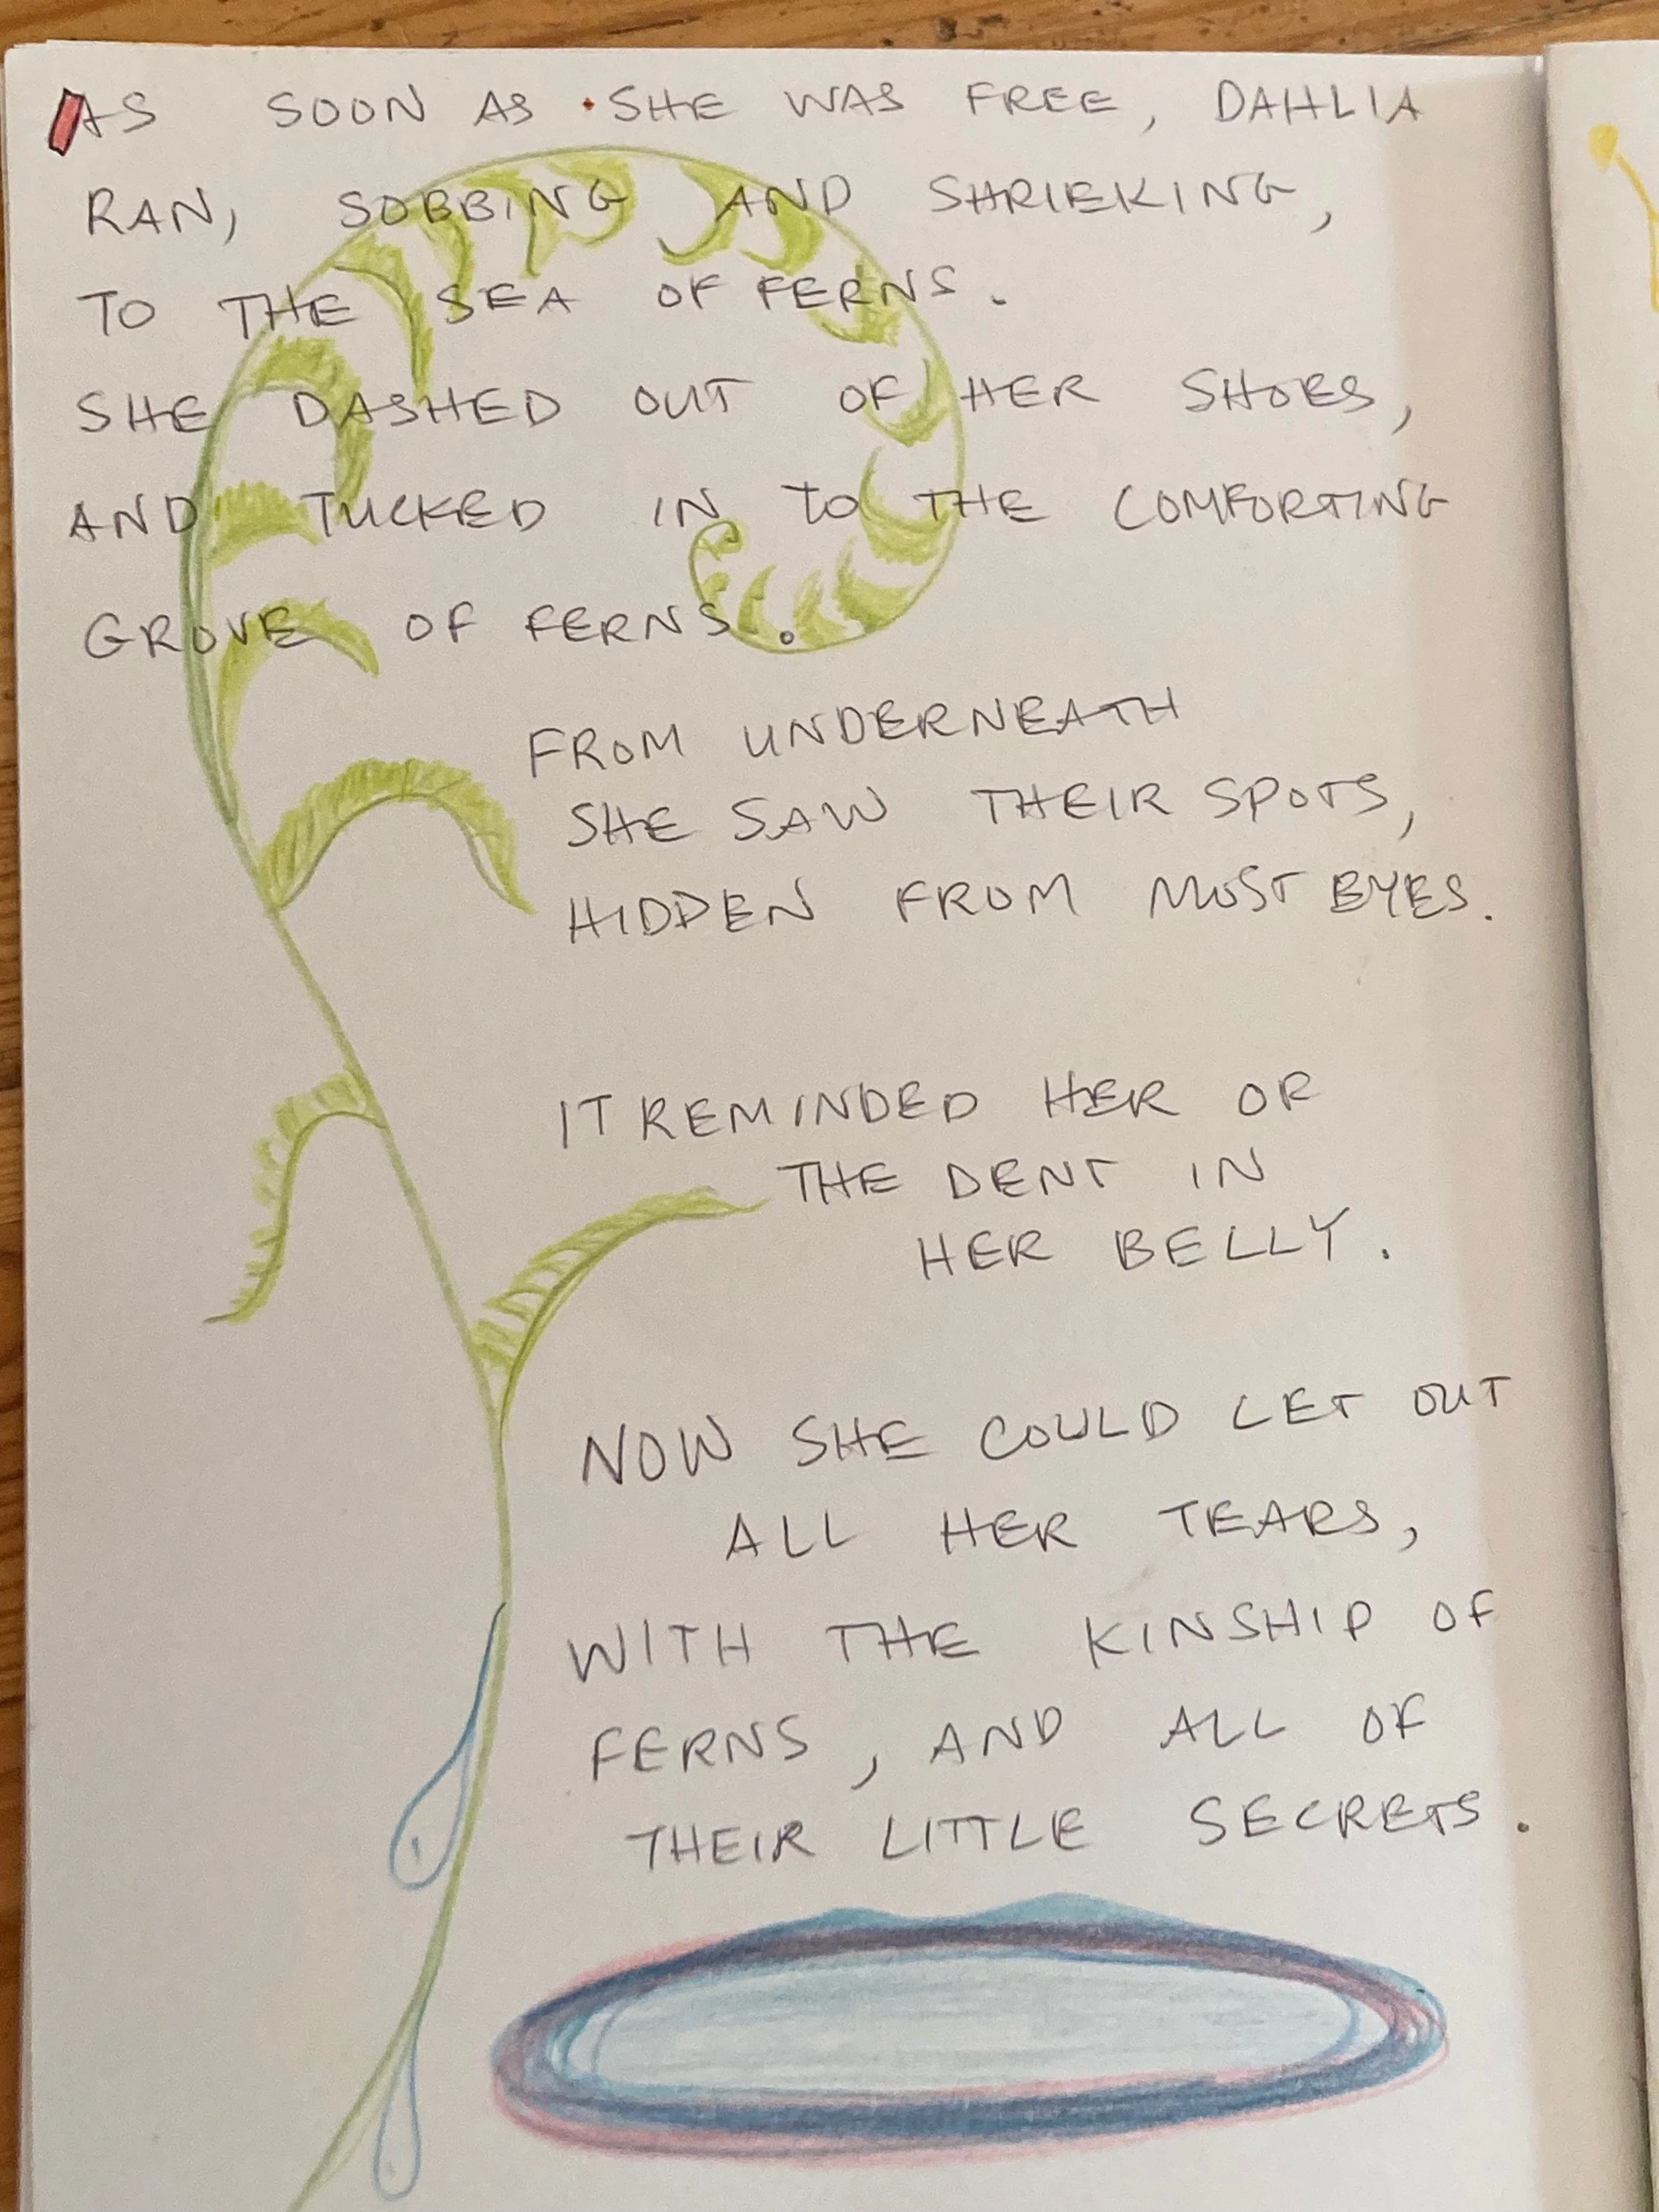 AS SOON AS SHE WAS FREE, DAHLIA
RAN, SOBBING AND SHRIEKING,
TO THE SEA OF FERNS.
SHE DASHED OUT OF HER SHOES,
AND TUCKED IN TO THE COMFORTING
GROVE OF FERNS.
FROM UNDERNEATH
SHE SAW THEIR SPOTS,
HIDDEN FROM MOST EYES.
IT REMINDED HER OF
THE DENT IN
HER BELLY.
NOW SHE COULD LET OUT
ALL HER TEARS,
WITH THE KINSHIP OF
FERNS, AND ALL OF
THEIR LITTLE SECRETS.